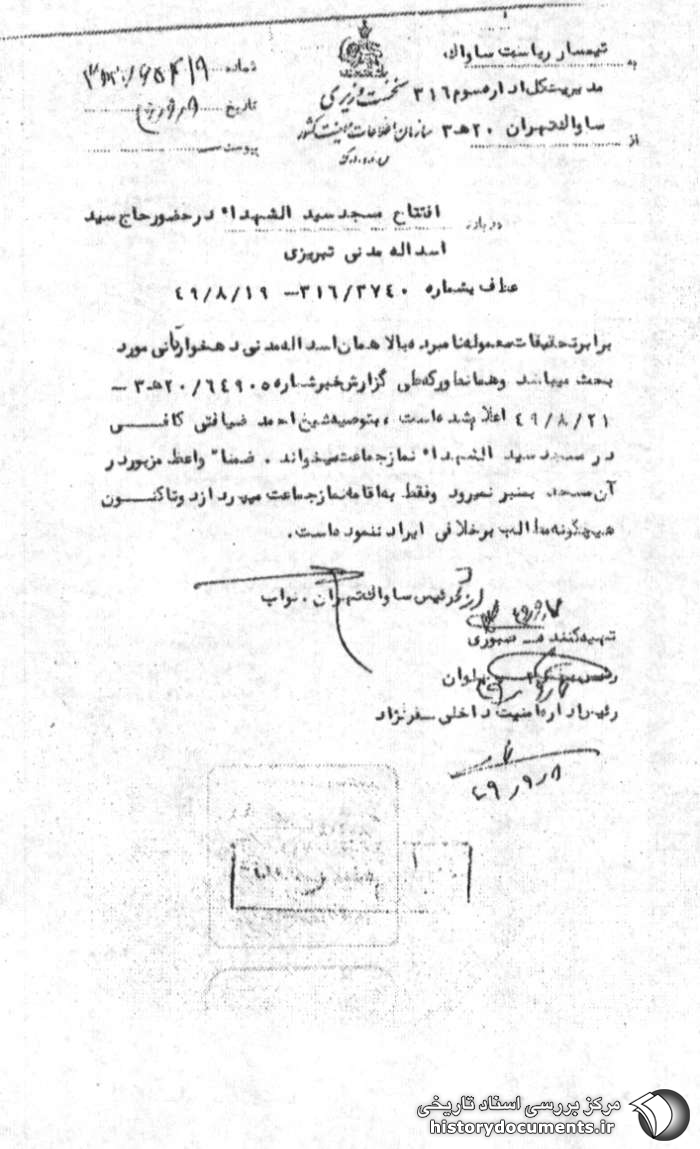 به تیمسار ریاست ساواک
مدیریت کل اداره سوم ۳۱۶
از ساواک تهران ۲۰ هـ ۳
نخست وزیری
سازمان اطلاعات و امنیت کشور
س.ا.و.ا.ک
شماره
تاریخ
پیوست
درباره افتتاح مسجد سید الشهداء در حضور حاج سید
اسداله مدنی تبریزی
عطف بشماره ۳۱۶/۳۷۴۰ – ۴۹/۸/۱۹
برابر تحقیقات معموله نامبرده بالا همان اسداله مدنی دهخوارقانی مورد
بحث میباشد و همانطور که طی گزارش خبر شماره ۲۰/۶۴۹۰۵ هـ ۳ –
۴۹/۸/۲۱ اعلام شده است، بتوصیه شیخ احمد ضیافتی کافی
در مسجد سید الشهداء نماز جماعت میخواند. ضمناً واعظ مزبور در
آن مسجد بمنبر نمیرود و فقط به اقامه نماز جماعت میپردازد و تاکنون
هیچگونه مطالب برخلافی ایراد ننموده است.
رئیس ساواک تهران. نواب
تهیه کننده – صبوری
رئیس بخش پهلوان
رئیس اداره امنیت داخلی سفرنژاد
۴۹/۹/۸
مرکز بررسی اسناد تاریخی
historydocuments.ir